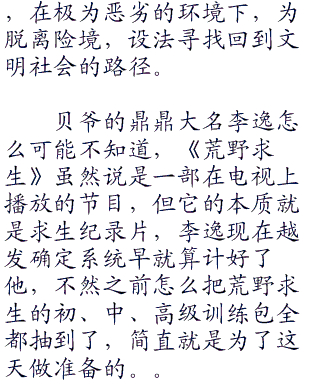 ，在极为恶劣的环境下，为
脱离险境，设法寻找回到文
明社会的路径。
贝爷的鼎鼎大名李逸怎
么可能不知道，《荒野求
生》虽然说是一部在电视上
播放的节目，但它的本质就
是求生纪录片，李逸现在越
发确定系统早就算计好了
他，不然之前怎么把荒野求
生的初、中、高级训练包全
都抽到了，简直就是为了这
天做准备的。。